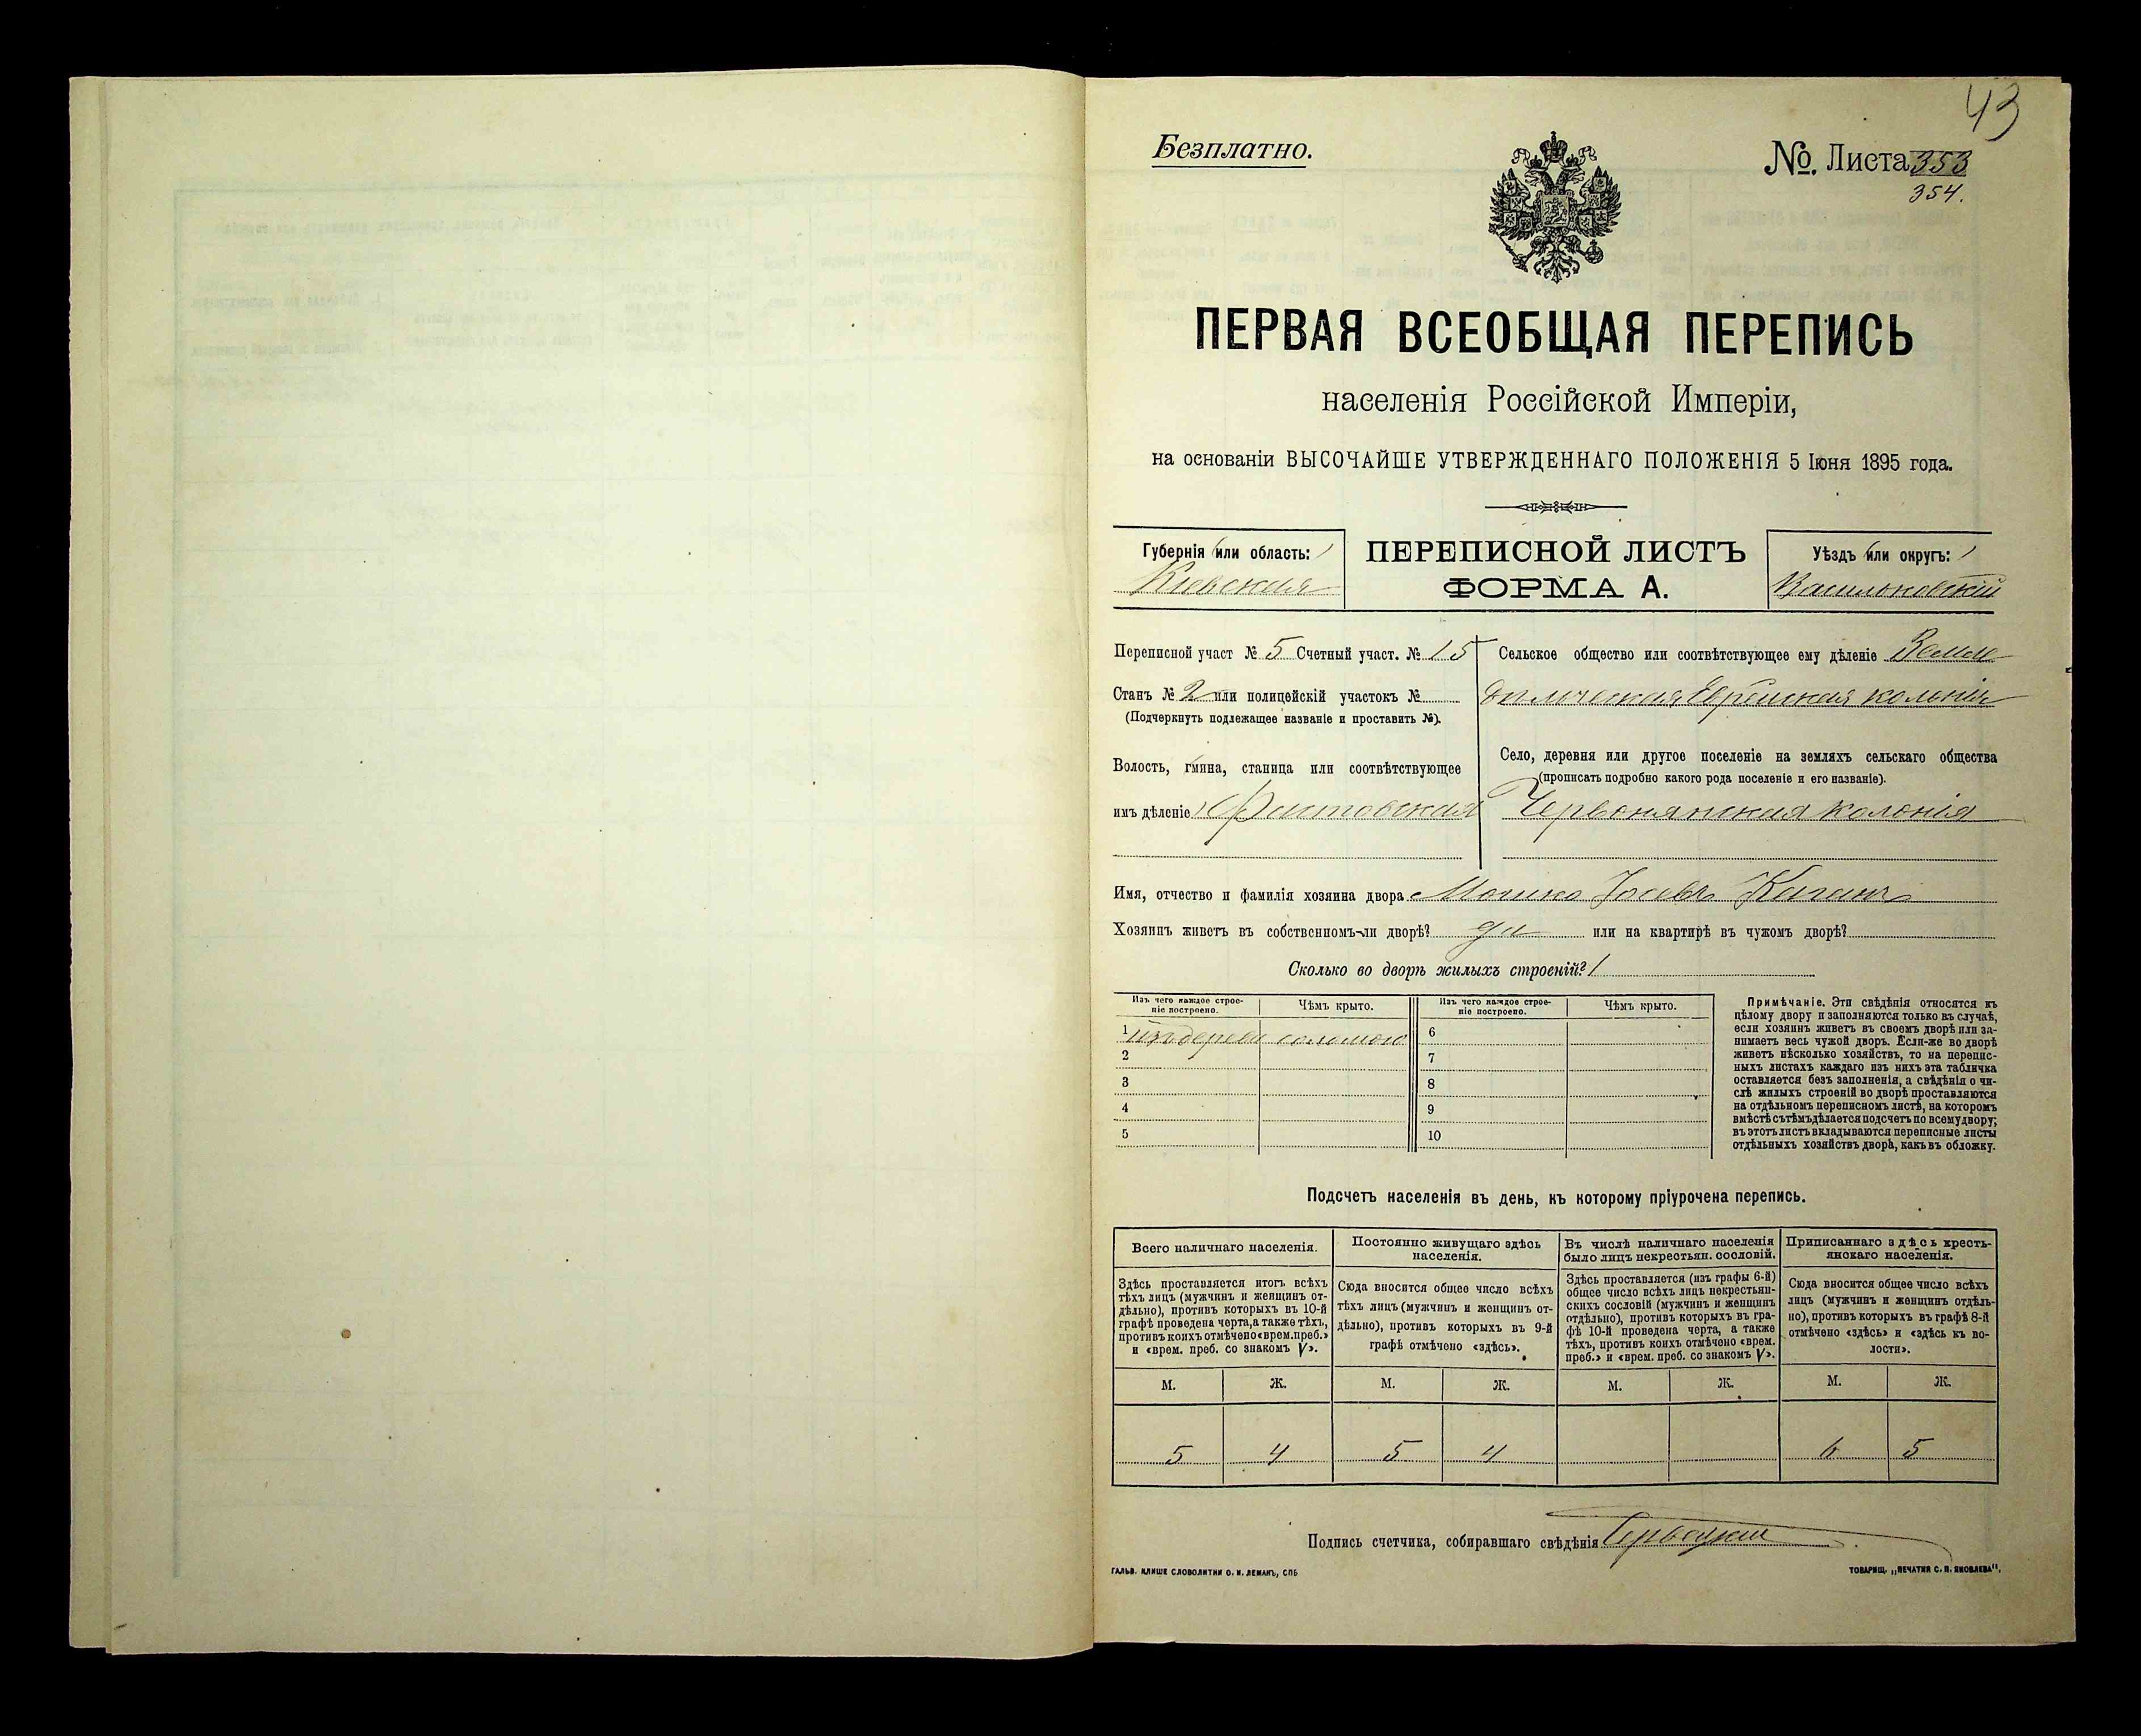 43
Безплатно.
№. Листа 353
354.
ПЕРВАЯ ВСЕОБЩАЯ ПЕРЕПИСЬ
населенія Россійской Имперіи,
на основаніи ВЫСОЧАЙШЕ УТВЕРЖДЕННАГО ПОЛОЖЕНІЯ 5 Іюня 1895 года.
Губернія (или область:)
Кіевская
ПЕРЕПИСНОЙ ЛИСТЪ
ФОРМА А.
Уѣздъ (или округъ:)
Васильковскій
Переписной участ № 5 Счетный участ. № 15
Станъ № 2 или полицейскій участокъ №
(Подчеркнуть подлежащее названіе и проставить №).
Волость, гмина, станица или соотвѣтствующее
имъ дѣленіе
Сельское общество или соотвѣтствующее ему дѣленіе Земле
дѣльческая Еврейская колонія
Село, деревня или другое поселеніе на земляхъ сельскаго общества
(прописать подробно какого рода поселеніе и его названіе).
Червонянская колонія
Имя, отчество и фамилія хозяина двора Мошко Іосевъ Каганъ
Хозяинъ живетъ въ собственномъ-ли дворѣ? да или на квартирѣ въ чужомъ дворѣ?
Сколько во дворѣ жилыхъ строеній? 1
Изъ чего каждое строе-
ніе построено.
Чѣмъ крыто.
Изъ чего каждое строе-
ніе построено.
Чѣмъ крыто.
1 изъ дерева соломою
2
3
4
5
6
7
8
9
10
Примѣчаніе. Эти свѣдѣнія относятся къ
цѣлому двору и заполняются только въ случаѣ,
если хозяинъ живетъ въ своемъ дворѣ или за-
нимаетъ весь чужой дворъ. Если-же во дворѣ
живетъ нѣсколько хозяйствъ, то на перепис-
ныхъ листахъ каждаго изъ нихъ эта табличка
оставляется безъ заполненія, а свѣдѣнія о чи-
слѣ жилыхъ строеній во дворѣ проставляются
на отдѣльномъ переписномъ листѣ, на которомъ
вмѣстѣ съ тѣмъ дѣлается подсчетъ по всему двору;
въ этотъ листъ вкладываются переписные листы
отдѣльныхъ хозяйствъ двора, какъ въ обложку.
Подсчетъ населенія въ день, къ которому пріурочена перепись.
Всего наличнаго населенія.
Здѣсь проставляется итогъ всѣхъ
тѣхъ лицъ (мужчинъ и женщинъ от-
дѣльно), противъ которыхъ въ 10-й
графѣ проведена черта, а также тѣхъ,
противъ коихъ отмѣчено «врем. преб.»
и «врем. преб. со знакомъ V».
Постоянно живущаго здѣсь
населенія.
Сюда вносится общее число всѣхъ
тѣхъ лицъ (мужчинъ и женщинъ от-
дѣльно), противъ которыхъ въ 9-й
графѣ отмѣчено «здѣсь».
Въ числѣ наличнаго населенія
было лицъ некрестьян. сословій.
Здѣсь проставляется (изъ графы 6-й)
общее число всѣхъ лицъ некрестьян-
скихъ сословій (мужчинъ и женщинъ
отдѣльно), противъ которыхъ въ гра-
фѣ 10-й проведена черта, а также
тѣхъ, противъ коихъ отмѣчено «врем.
преб.» и «врем. преб. со знакомъ V».
Приписаннаго здѣсь кресть-
янскаго населенія.
Сюда вносится общее число всѣхъ
лицъ (мужчинъ и женщинъ отдѣль-
но), противъ которыхъ въ графѣ 8-й
отмѣчено «здѣсь» и «здѣсь къ во-
лости».
М. Ж. М. Ж. М. Ж. М. Ж.
5 4 5 4 6 5
Подпись счетчика, собиравшаго свѣдѣнія
ГАЛЬВ. КЛИШЕ СЛОВОЛИТНИ О. И. ЛЕМАНЪ, СПБ
ТОВАРИЩ. „ПЕЧАТНЯ С. П. ЯКОВЛЕВА",